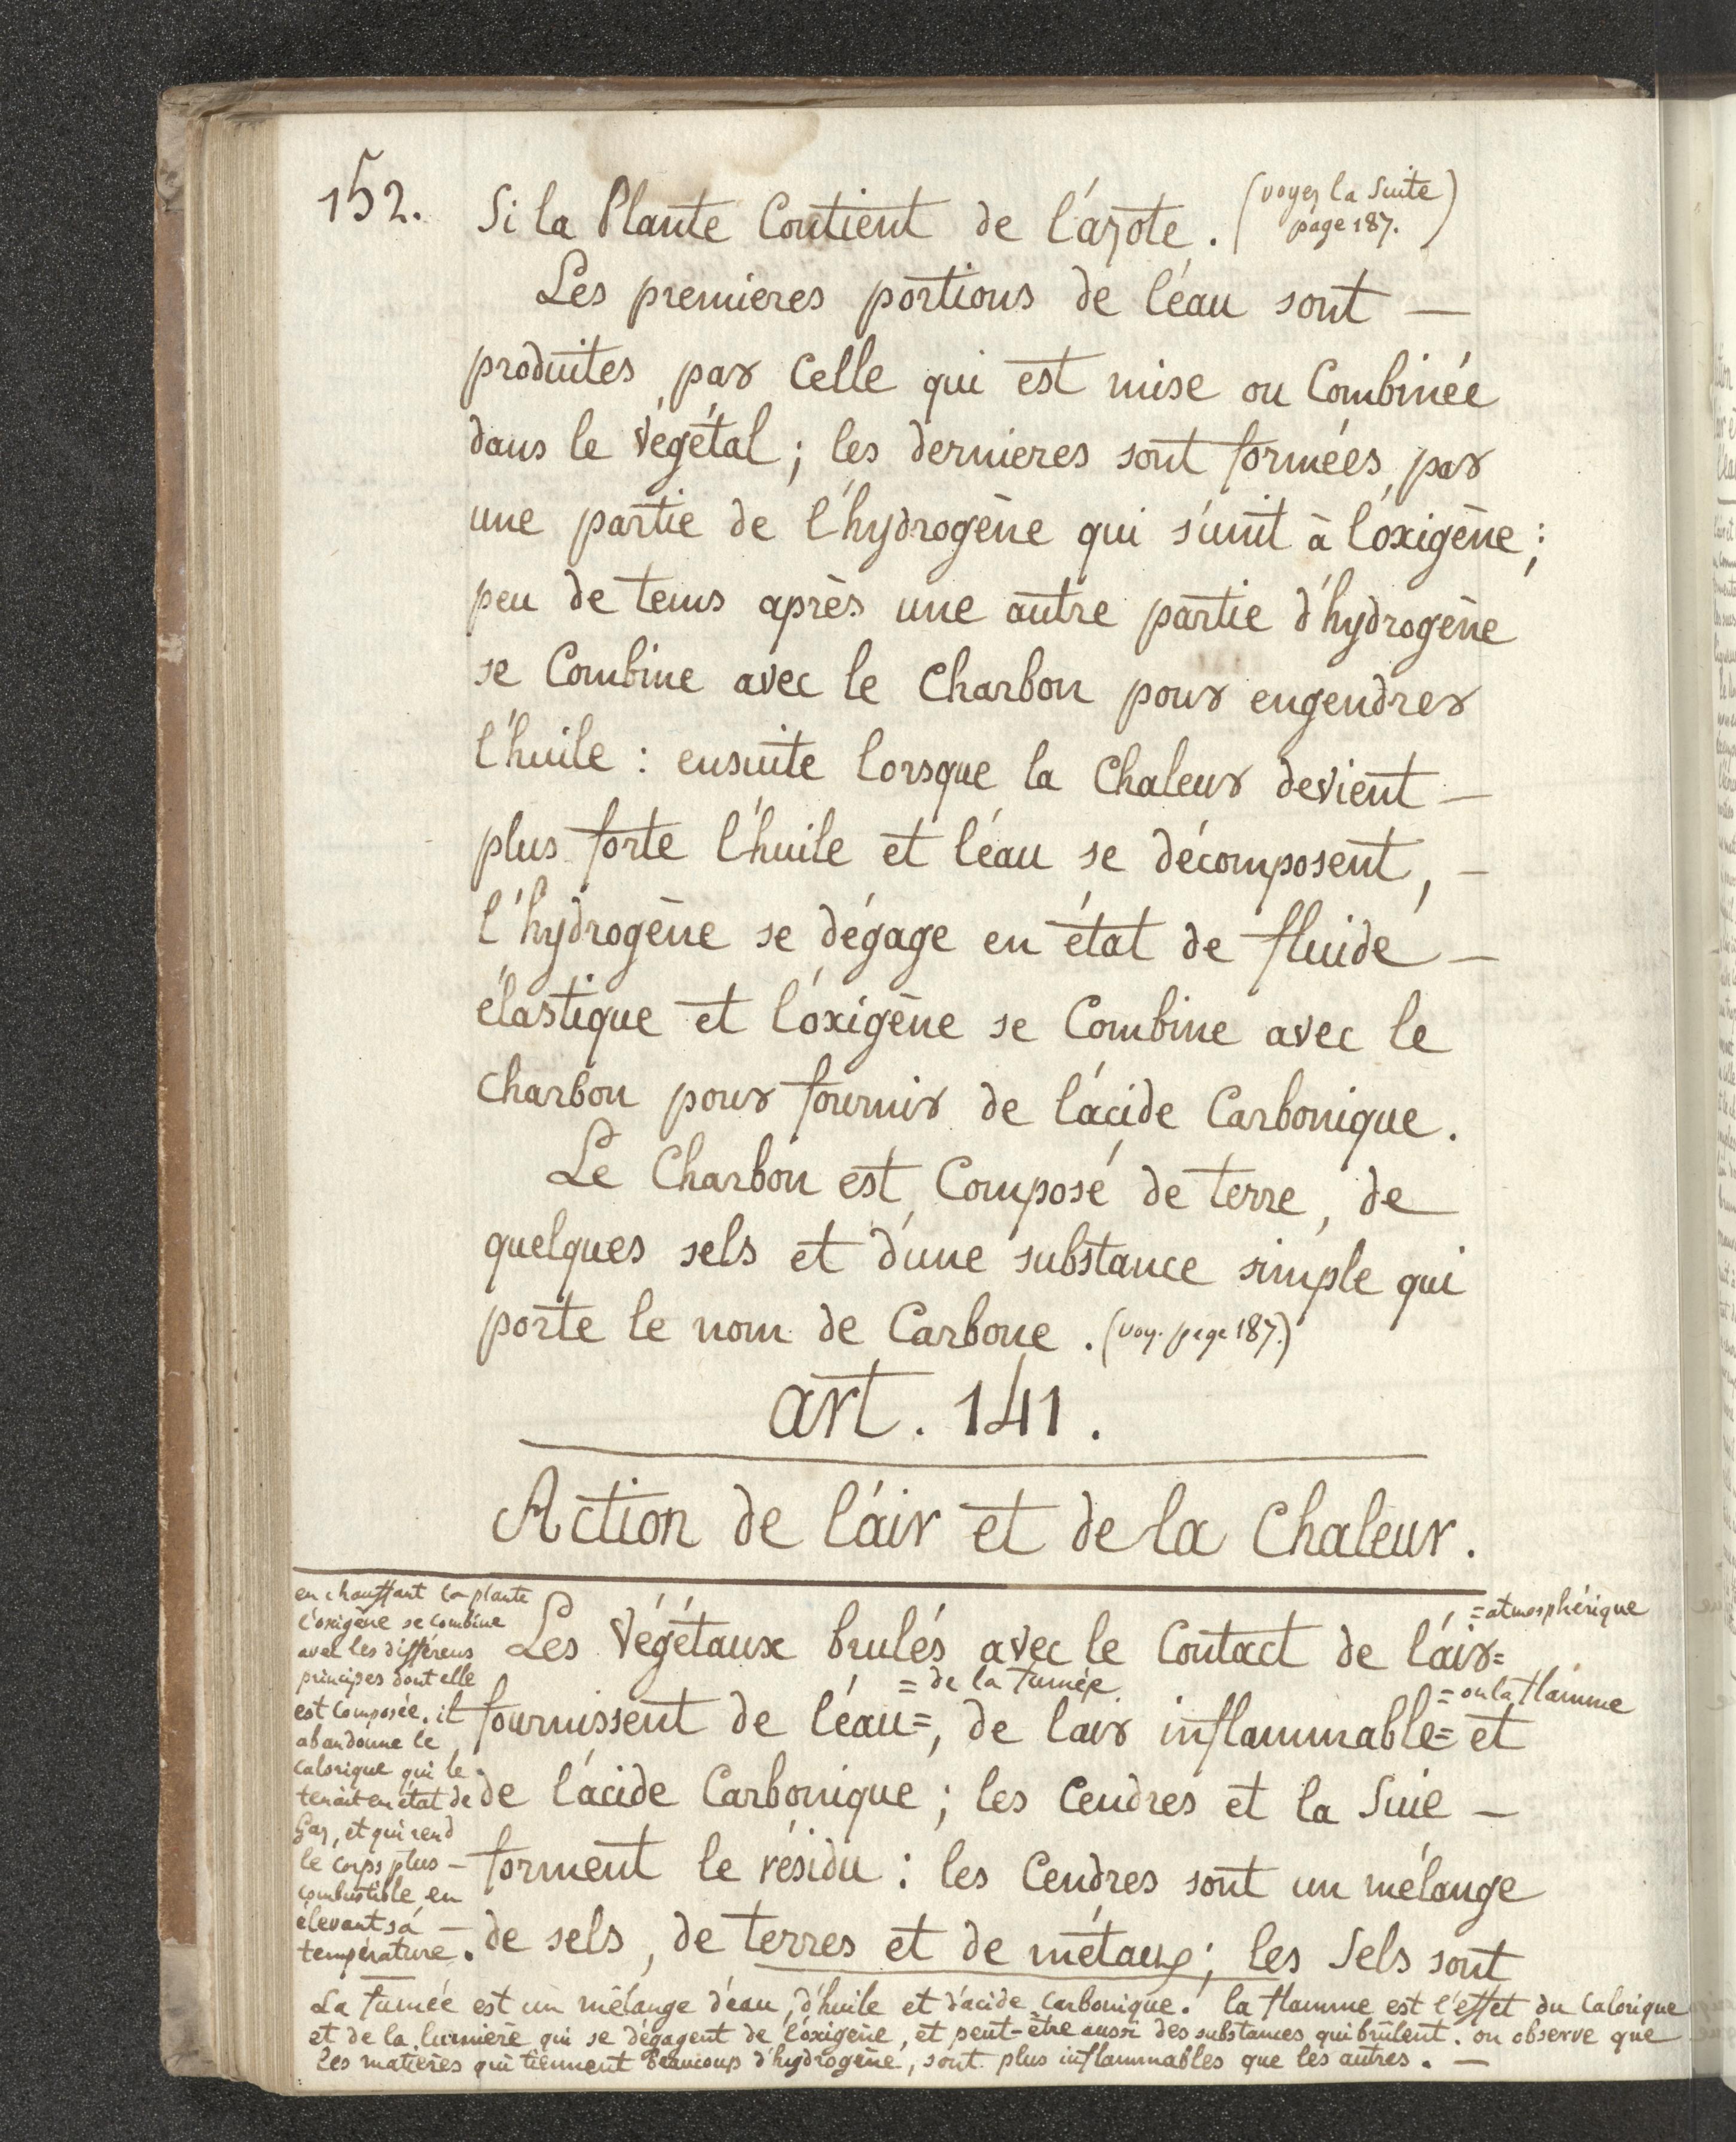 152.
Si la Plante Contient de l'azote. (voyez la Suite
page 187.)
Les premieres portions de l'éau sont —
produites par Celle qui est mise ou Combinée
dans le végétal ; les dernieres sont formées par
une partie de l'hydrogène qui s'unit à l'oxigène ;
peu de tems après une autre partie d'hydrogène
se Combine avec le Charbon pour engendrer
l'huile : ensuite lorsque la Chaleur devient —
plus forte l'huile et l'éau se décomposent, —
l'hydrogène se dégage en état de fluide —
élastique et l'oxigène se Combine avec le
Charbon pour fournir de l'acide Carbonique.
Le Charbon est Composé de terre, de
quelques sels et d'une substance simple qui
porte le nom de Carbone. (voy. page 187.)
art. 141.
Action de l'air et de la Chaleur.
en chauffant la plante
l'oxigène se combine
avec les différens
principes dont elle
est composée. il
abandonne le
calorique qui le
tenait en état de
Gaz, et qui rend
le corps plus —
combustible en
élevant sa —
température.
= atmosphérique
Les végétaux brulés avec le Contact de l'air=
= de la fumée
= ou la flamme
fournissent de l'éau=, de l'air inflammable= et
de l'acide Carbonique ; les Cendres et la Suie —
forment le résidu : les Cendres sont un mélange
de sels, de terres et de métaux ; les Sels sont
La fumée est un mélange d'eau, d'huile et d'acide carbonique. la flamme est l'effet du Calorique
et de la lumière qui se dégagent de l'oxigène, et peut-être aussi des substances qui brûlent. on observe que
les matieres qui tiennent beaucoup d'hydrogène, sont plus inflammables que les autres. —